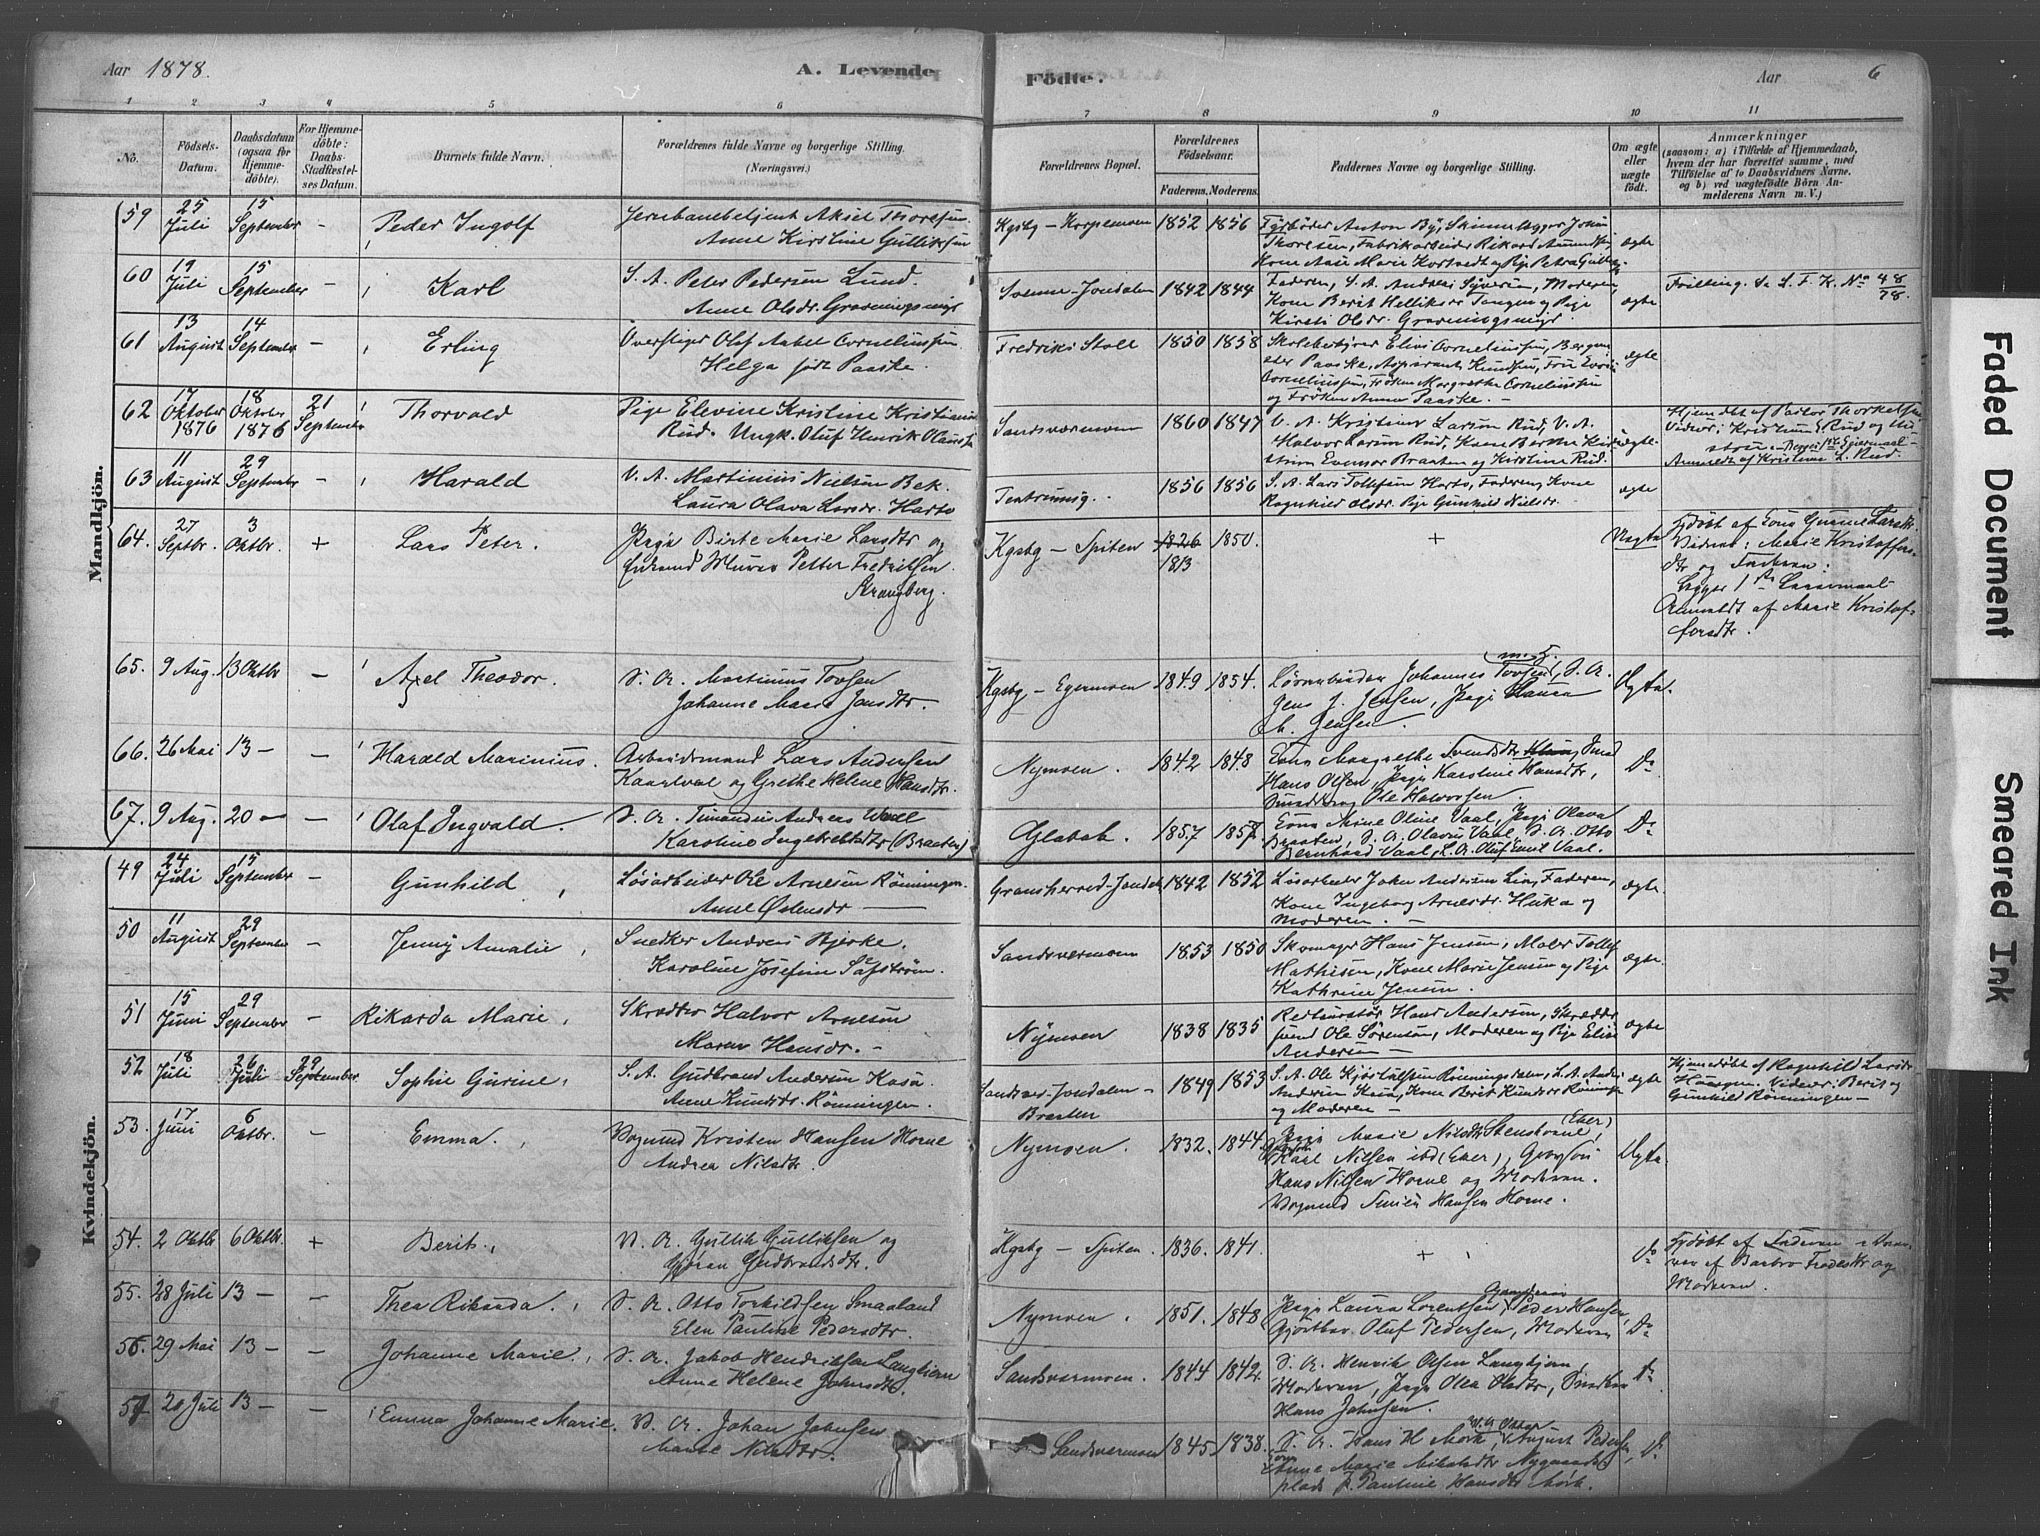 Aar 1878. A. Levende Födte. Aar 6
1 2 3 4 5 6 7 8 9 10 11
No. Födsels-Datum. Daabsdatum (ogsaa for Hjemmedöbte). For Hjemmedöbte: Daabs-Stadfæstelses Datum. Barnets fulde Navn. Forældrenes fulde Navne og borgerlige Stilling. (Næringsvei.) Forældrenes Bopæl. Forældrenes Födselsaar. Faderens. Moderens. Faddernes Navne og borgerlige Stilling. Om ægte eller uægte födt. Anmærkninger (saasom: a) i Tilfælde af Hjemmedaab, hvem der har forrettet samme, med Tilföielse af to Daabsvidners Navne. og b) ved uægtefödte Börn Anmelderens Navn m. V.)
Mandkjön.
59 25 Juli 15 September – Peder Ingolf Jernbanebetjent Aksel Thoresen
Anne Kirstine Gulliksen Kgsbg – 1852 1856 Fyrböder Anton By, John
Thoresen, Fabrikarbeider Rikard Amundsen
Kone Marie og Pige Petra ægte
60 19 Juli 15 September – Karl S. A. Peter Pedersen Lund.
Anne Olsdr. Gravningsmyr Svenne-Jondalen 1842 1844 Faderen, S. A. Andreas Syversen, Moderen
Kone Berit Helliksdr Tangen og Pige
Kirsti Olsdr. Gravningsmyr. ægte Frilling. Se L. F. K. No 48/78.
61 13 August 14 September – Erling Overstiger Olaf Aabel Corneliussen
Helga född Paaske. Fredriks Stoll 1850 1858 Skolebestyrer Corneliussen, Bergme-
ster Paaske, Aspirant Knudsen, Fru
Corneliussen, Fröken Margrethe Corneliussen
og Fröken Anna Paaske. – ægte
62 17 Oktober 1876 18 Oktober 1876 21 September Thorvald Pige Elevine Kristine Kristians
Rud. Ungk. Oluf Henrik Olaussen Sandsværmoen 1860 1847 V. A. Kristian Larsen Rud, V. A.
Halvor Larsen Rud, Kone Berthe
Evensdr Braaten og Kirstine Rud. uægte Hjemdöbt af Pastor Thorkelsen
Vidner: Kristian Rud og
Begges 1ste Leiermaal –
Anmeldt af Kristian L. Rud.
63 11 August 29 September – Harald V. A. Martinius Nielsen Bek.
Laura Olava Larsdr. Hortó 1856 1856 S. A. Lars Tollefsen Hortó, Faderen, Kone
Ragnhild Olsdr. Pige Gunhild Nielsdr. ægte
64. 27 Septbr. 3 Oktbr. + Lars Peter. Pige Birte Marie Larsdtr og
Enkemand Murer Petter Fredriksen
Strangberg. Kgsbg – Spiten 1826 1813 1850. + Uægte Hjdöbt af Kone Gurine Larsdtr.
Vidner: Marie Kristoffers-
dtr og Faderen.
Begges 1ste Leiermaal
Anmeldt af Marie Kristof-
fersdtr.
65. 9 Aug. 13 Oktbr – Axel Theodor. S. A. Martinius Tovsen
Johanne Marie Jensdtr. – Kgsbg – Egermoen 1849 1854. Lösarbeider Johannes Tovsen, S. A.
Jens J. Jensen, Pige Laura
M. Jensen. Ægte.
66. 26 Mai 13 – – Harald Marinius. Arbeidsmand Lars Andersen
Kaasedal og Grethe Helene Hansdtr. Nymoen. 1842 1848 Kone Margrethe Svendsdtr, Smed
Hans Olsen, Pige Karoline Hansdtr,
Ole Halvorsen. Do
67. 9 Aug. 20 – – Olaf Ingvald. S. A. Andreas Waal
Karoline Ingebretsdtr (Braaten) Glabak. 1857 1857 Kone Mine Oline Vaal, Pige Olava
Braaten, S. A. Olavus Vaal, S. A. Otto
Bernhard Vaal, S. A. Oluf Emil Vaal. Do
Kvindekjön.
49 24 Juli 15 September – Gunhild Lösarbeider Ole Arnesen Rönningen.
Anne Östensdr Gransherred-Jondalen 1842 1852 Lösarbeider John Andersen Lia, Faderen,
Kone Ingeborg Arnesdr. og
Moderen. – ægte
50 11 August 29 September – Jenny Amalie Snedker Andreas Bjerke.
Karoline Josefine Säfström. Sandsværmoen 1853 1850 Skomager Hans Jensen, Maler Tollef
Mathisen, Kone Marie Jensen og Pige
Kathrine Jensen. ægte.
51 15 Juni 29 September – Rikarda Marie Skrædder Halvor Arnesen
Maren Hansdr. – Nymoen 1838 1835 Hans Andersen, Skrædder-
svend Ole Sörensen, Moderen og Pige Elise
Andersen – ægte
52 18 Juli 26 Juli 29 September Sophie Gurine S. A. Gudbrand Andersen Kasa.
Anne Knudsdr. Rönningen. Sandsvær-Jondalen – Braaten 1849 1853 S. A. Ole Kjöstulfsen Rönningsdalen, S. A.
Andersen Kasa, Kone Berit Knudsdr Rönningen
og Moderen – ægte Hjemmedöbt af Ragnhild Larsdr
Haugen. Vidner: Berit og
Gunhild Rönningen –
53. 17 Juni 6 Oktbr. – Emma. Vognmd Kristen Hansen Horne
Andrea Nilsdtr. Nymoen. 1832. 1844. Pige Marie Nilsdtr Stensborne (Eker),
Karl Nilsen ibd (Eker),
Hans Nilsen Horne og Moderen.
Vognmd Simen Hansen Horne. Ægte
54. 2 Oktbr 6 Oktbr. + Berit. S. A. Gullik Gulliksen og
Göran Gudbrandsdtr. Kgsbg – Spiten. 1836. 1841. + Do Hjdöbt af Faderen
af Barbro og
Moderen.
55. 28 Juli 13 – – Thea Rikarda. S. A. Otto Torkildsen Smaaland
Elen Pauline Pedersdtr. Nymoen. 1851. 1848 Pige Laura Lorentsen, Peder Hansen,
Oluf Pedersen, Moderen Do
56. 29 Mai 13 – – Johanne Marie. S. A. Jakob Hendriksen Langbjern
Anne Helene Johnsdtr. Sandsværmoen. 1844 1842. S. A. Henrik Olsen Langbjern,
Moderen, Pige Olea Olsdtr,
Hans Johnsen. Do
57 20 Juli 13 – – Emma Johanne Marie. S. A. Johan Johnsen
Marie Nilsdtr. Sandsværmoen 1845 1838. S. A. Hans H Mörk, August Pedersen,
Anne Marie Mikalsdtr Nygaards-
plads, P. Pauline Hansdtr Mörk. Do
Faded Document
Smeared Ink